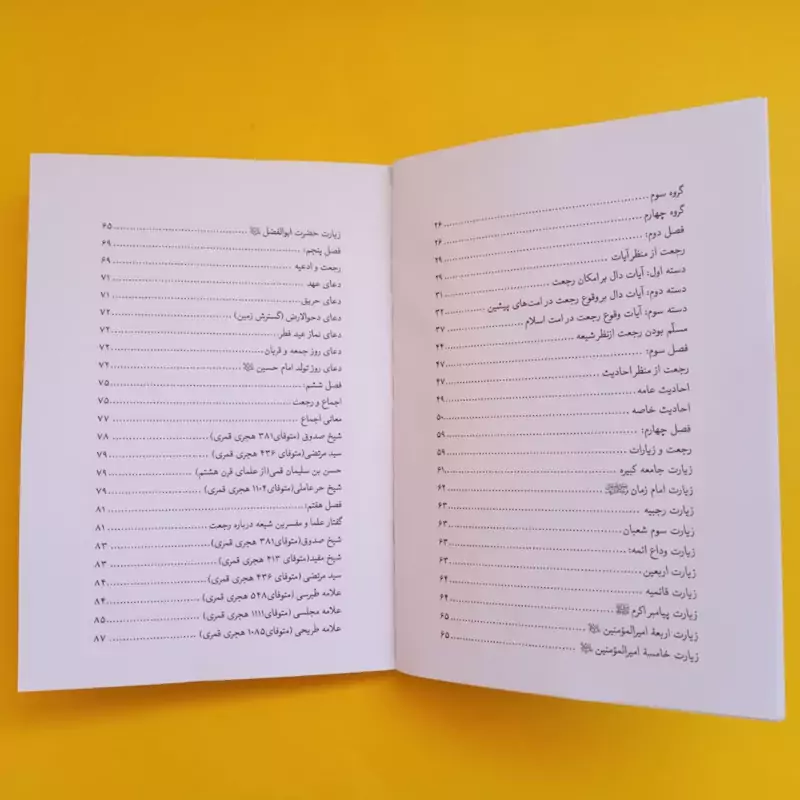 گروه سوم ........ ۲۶
گروه چهارم ........ ۲۶
فصل دوم: ........ ۲۹
رجعت از منظر آیات ........ ۲۹
دسته اول: آیات دال بر امکان رجعت ........ ۳۱
دسته دوم: آیات دال بر وقوع رجعت در امت‌های پیشین ........ ۳۲
دسته سوم: آیات وقوع رجعت در امت اسلام ........ ۳۷
مسلّم بودن رجعت از نظر شیعه ........ ۴۴
فصل سوم: ........ ۴۷
رجعت از منظر احادیث ........ ۴۷
احادیث عامه ........ ۴۹
احادیث خاصه ........ ۵۰
فصل چهارم: ........ ۵۹
رجعت و زیارات ........ ۵۹
زیارت جامعه کبیره ........ ۶۱
زیارت امام زمان ........ ۶۲
زیارت رجبیه ........ ۶۳
زیارت سوم شعبان ........ ۶۳
زیارت وداع ائمه: ........ ۶۳
زیارت اربعین ........ ۶۳
زیارت قائمیه ........ ۶۴
زیارت پیامبر اکرم ﷺ ........ ۶۴
زیارت اربعة امیرالمؤمنین ........ ۶۵
زیارت خامسة امیرالمؤمنین ........ ۶۵
زیارت حضرت ابوالفضل ........ ۶۵
فصل پنجم: ........ ۶۹
رجعت و ادعیه ........ ۶۹
دعای عهد ........ ۷۱
دعای حریق ........ ۷۱
دعای دحوالارض (گسترش زمین) ........ ۷۲
دعای نماز عید فطر ........ ۷۲
دعای روز جمعه و قربان ........ ۷۴
دعای روز تولد امام حسین ........ ۷۴
فصل ششم: ........ ۷۵
اجماع و رجعت ........ ۷۵
معانی اجماع ........ ۷۷
شیخ صدوق (متوفای ۳۸۱ هجری قمری) ........ ۷۸
سید مرتضی (متوفای ۴۳۶ هجری قمری) ........ ۷۹
حسن بن سلیمان قمی (از علمای قرن هشتم) ........ ۷۹
شیخ حر عاملی (متوفای ۱۱۰۴ هجری قمری) ........ ۷۹
فصل هفتم: ........ ۸۱
گفتار علما و مفسرین شیعه درباره رجعت ........ ۸۱
شیخ صدوق (متوفای ۳۸۱ هجری قمری) ........ ۸۳
شیخ مفید (متوفای ۴۱۳ هجری قمری) ........ ۸۳
سید مرتضی (متوفای ۴۳۶ هجری قمری) ........ ۸۴
علامه طبرسی (متوفای ۵۴۸ هجری قمری) ........ ۸۴
علامه مجلسی (متوفای ۱۱۱۱ هجری قمری) ........ ۸۵
علامه طریحی (متوفای ۱۰۸۵ هجری قمری) ........ ۸۷